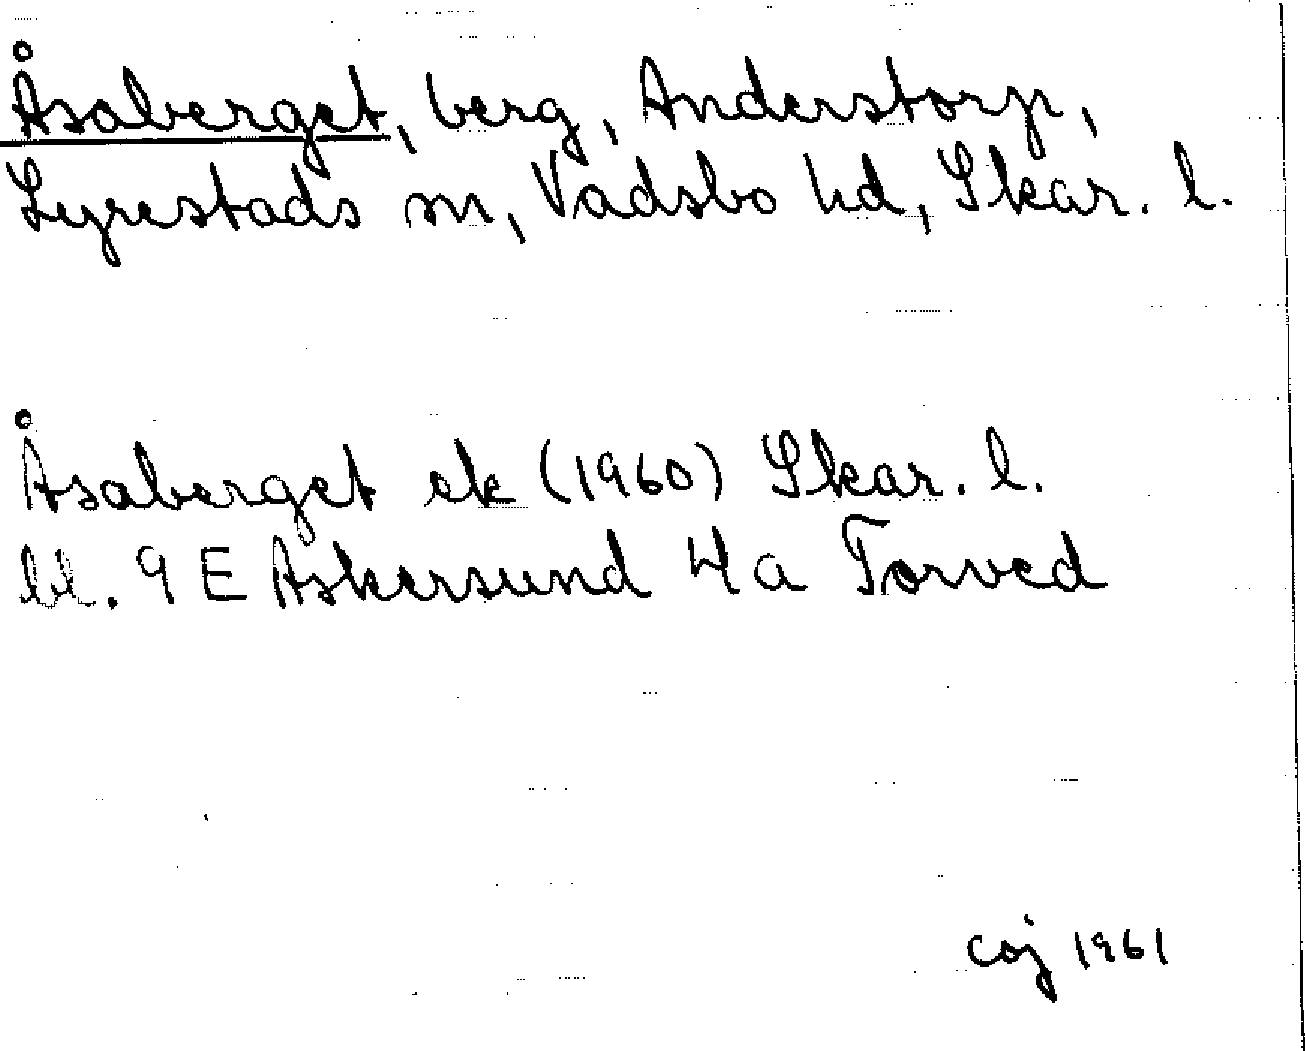 Åsaberget, berg, Anderstorp,
Lyrestads sn, Vadsbo hd, Skar. l.
Åsaberget ek (1960) Skar. l.
bl. 9 E Askersund 4 a Torved
coj 1961